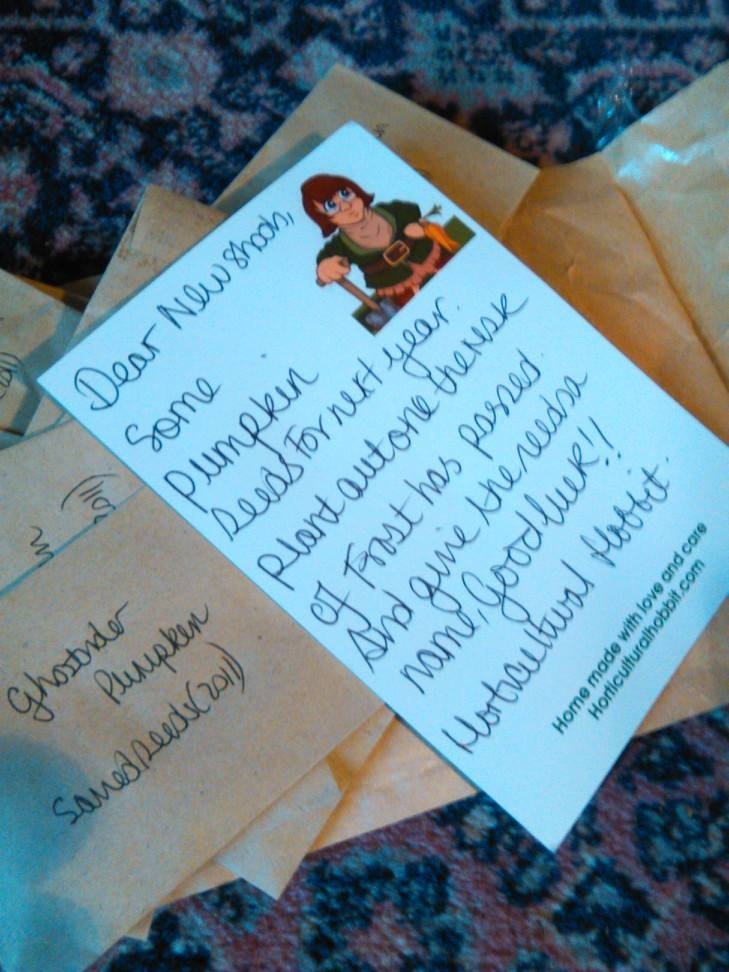 Dear New Shoots,
Some
Pumpkin
Seeds For next year.
Plant out one the risk
of Frost has passed.
And give the seeds a
name, Good luck!!
Horticultural Hobbit.
Home made with love and care
Horticulturalhobbit.com
(2011)
Ghostrider
Pumpkin
Saved seeds (2011)